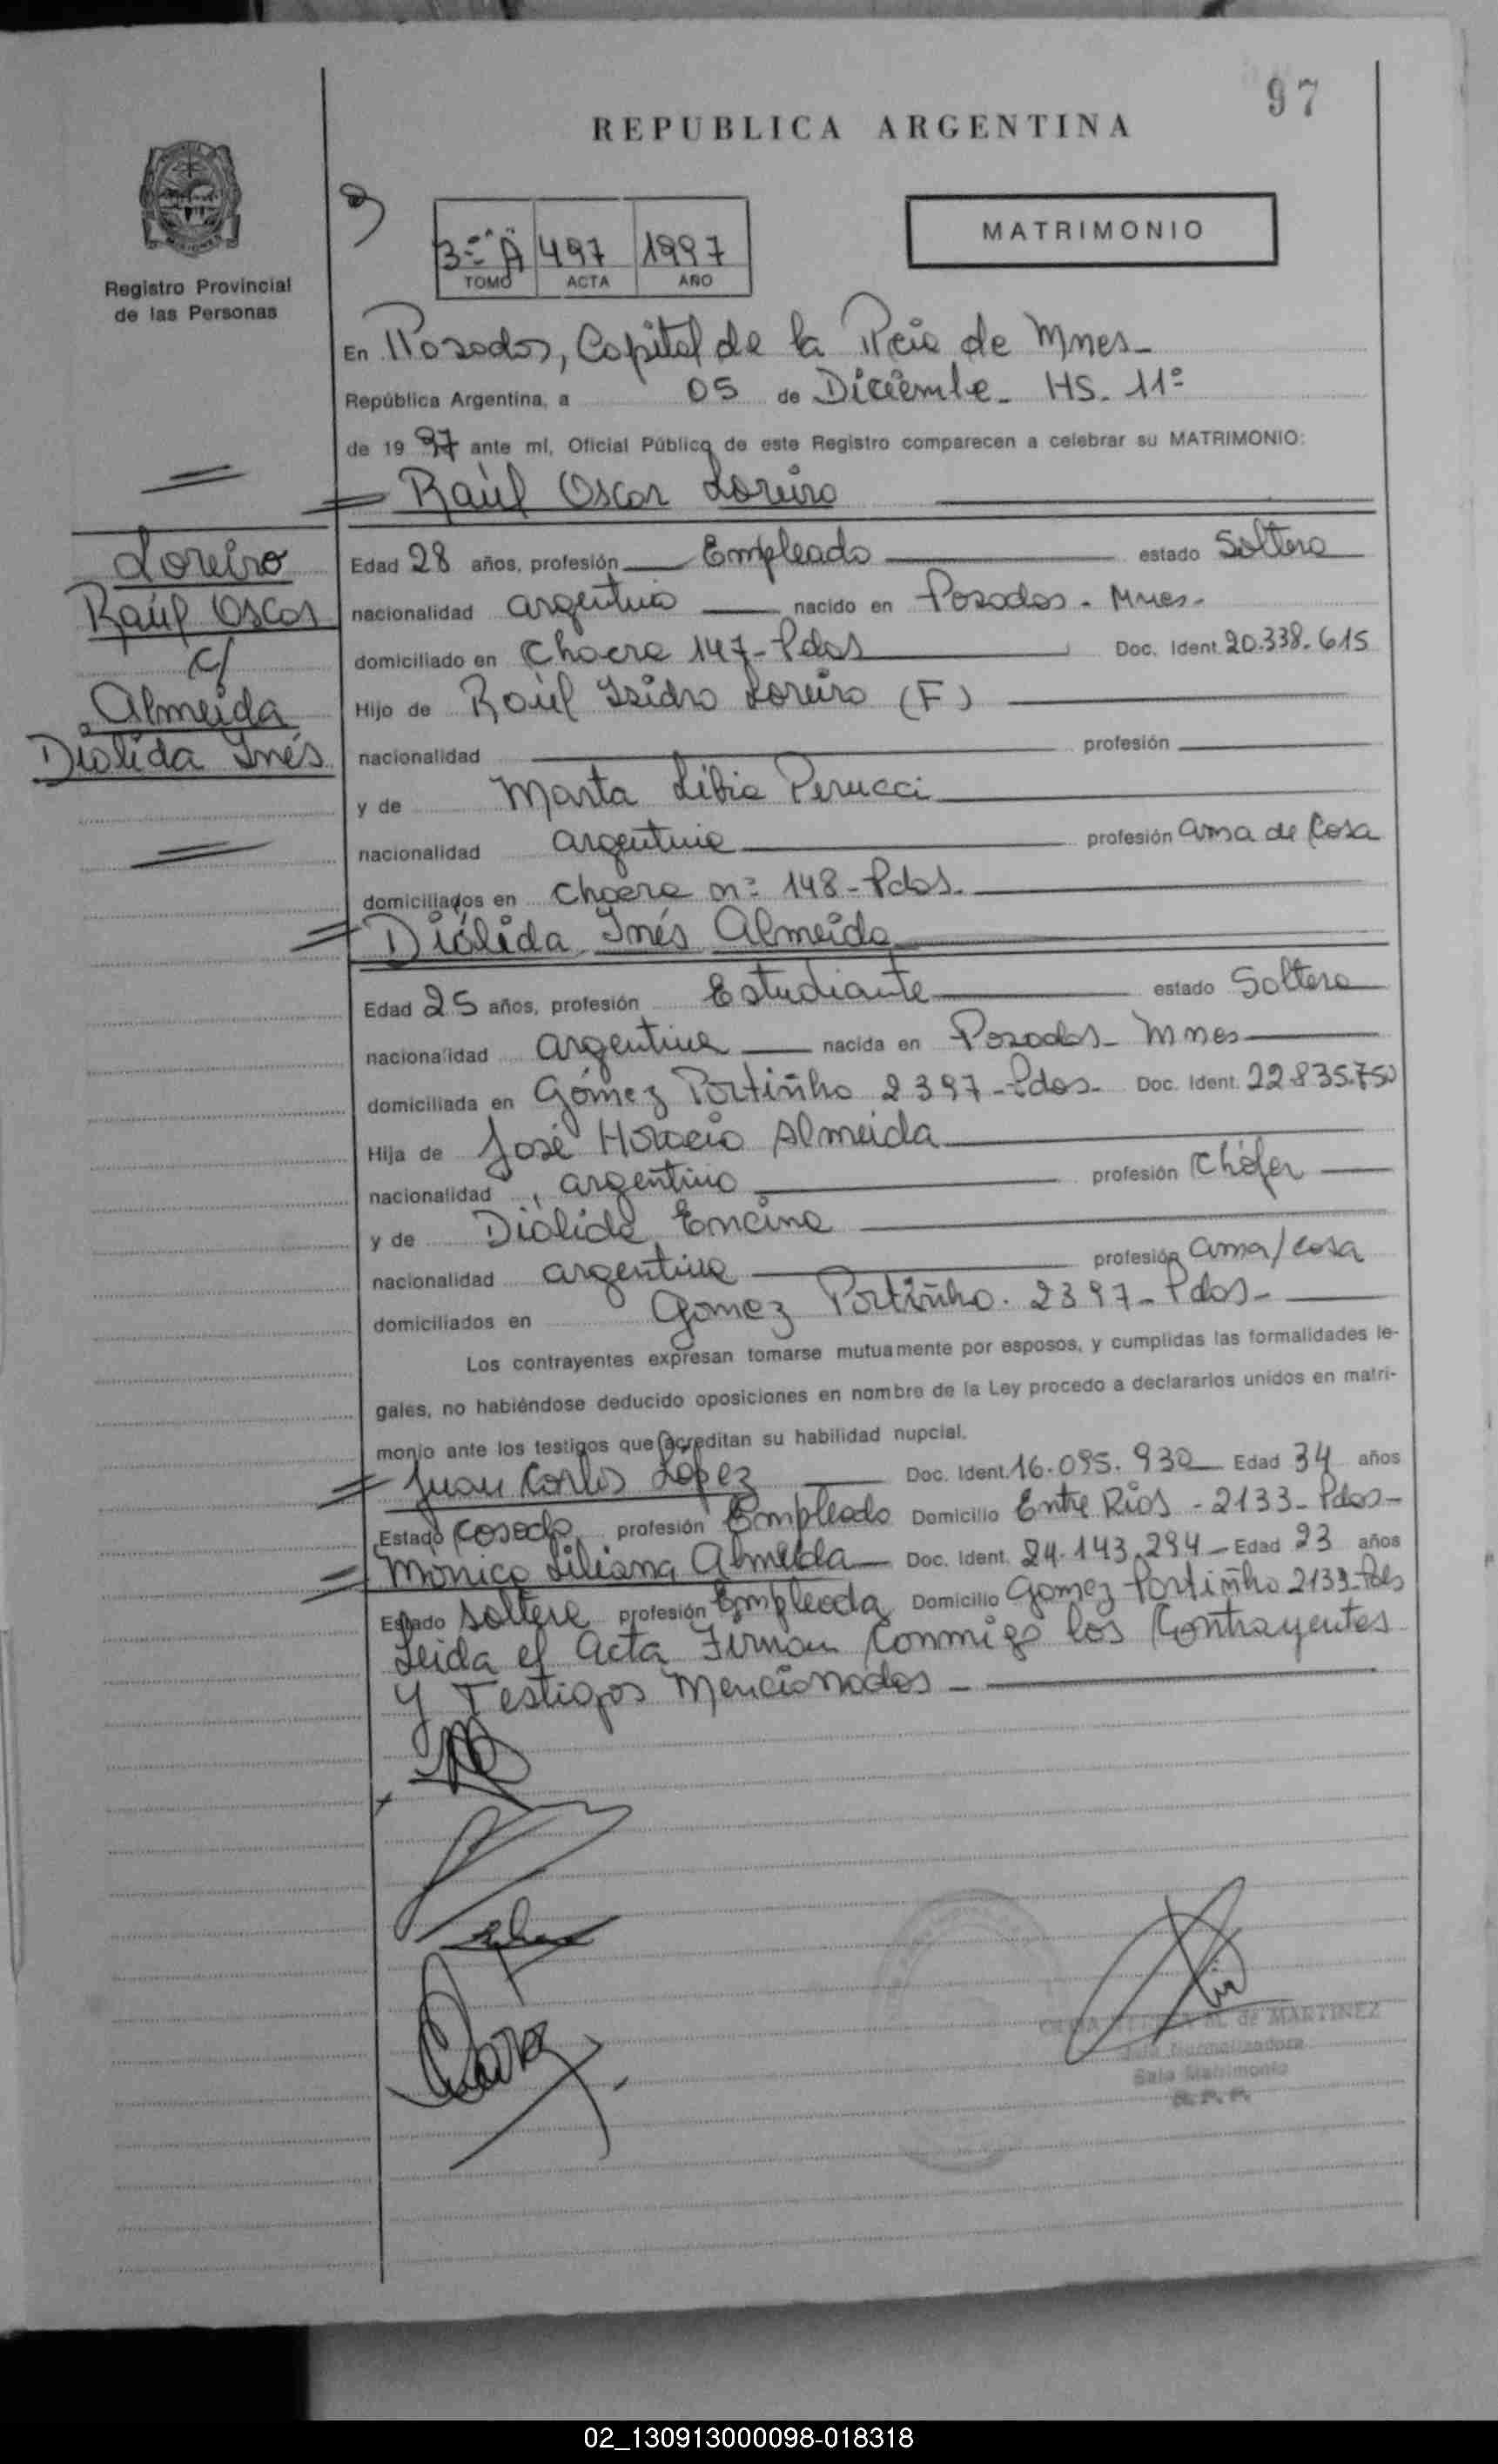 97
REPUBLICA ARGENTINA
MATRIMONIO
3º "A" 497 1997
TOMO ACTA AÑO
Registro Provincial
de las Personas
En Posadas, Capital de la Pcia de Mnes-
República Argentina, a 05 de Diciembre- HS. 11º
de 1997 ante mí, Oficial Público de este Registro comparecen a celebrar su MATRIMONIO:
Raúl Oscar Loreiro
Loreiro
Raúl Oscar
c/
Almeida
Diólida Inés
Edad 28 años, profesión Empleado estado Soltero
nacionalidad argentino nacido en Posadas - Mnes-
domiciliado en Chacra 147-Pdas Doc. Ident. 20.338.615
Hijo de Raúl Isidro Loreiro (F)
nacionalidad profesión
y de Marta Libia Perucci
nacionalidad argentina profesión ama de Casa
domiciliados en Chacra nº 148-Pdas.
Diólida Inés Almeida
Edad 25 años, profesión Estudiante estado Soltera
nacionalidad argentina nacida en Posadas- Mnes
domiciliada en Gómez Portiñho 2397-Pdas- Doc. Ident. 22.835.750
Hija de José Horacio Almeida
nacionalidad argentino profesión Chófer
y de Diólida Encina
nacionalidad argentina profesión ama/casa
domiciliados en Gomez Portiñho. 2397-Pdas-
Los contrayentes expresan tomarse mutuamente por esposos, y cumplidas las formalidades le-
gales, no habiéndose deducido oposiciones en nombre de la Ley procedo a declararlos unidos en matri-
monio ante los testigos que acreditan su habilidad nupcial.
Juan Carlos López Doc. Ident. 16.095.930 Edad 34 años
Estado Casado profesión Empleado Domicilio Entre Ríos - 2133- Pdas-
Monica Liliana Almeida Doc. Ident. 24.143.294- Edad 23 años
Estado Soltera profesión Empleada Domicilio Gomez Portiñho 2133-Pdas
Leida el Acta Firman Conmigo los Contrayentes
y Testigos Mencionados-
de MARTINEZ
Sala Matrimonio
R. P. P.
02_130913000098-018318